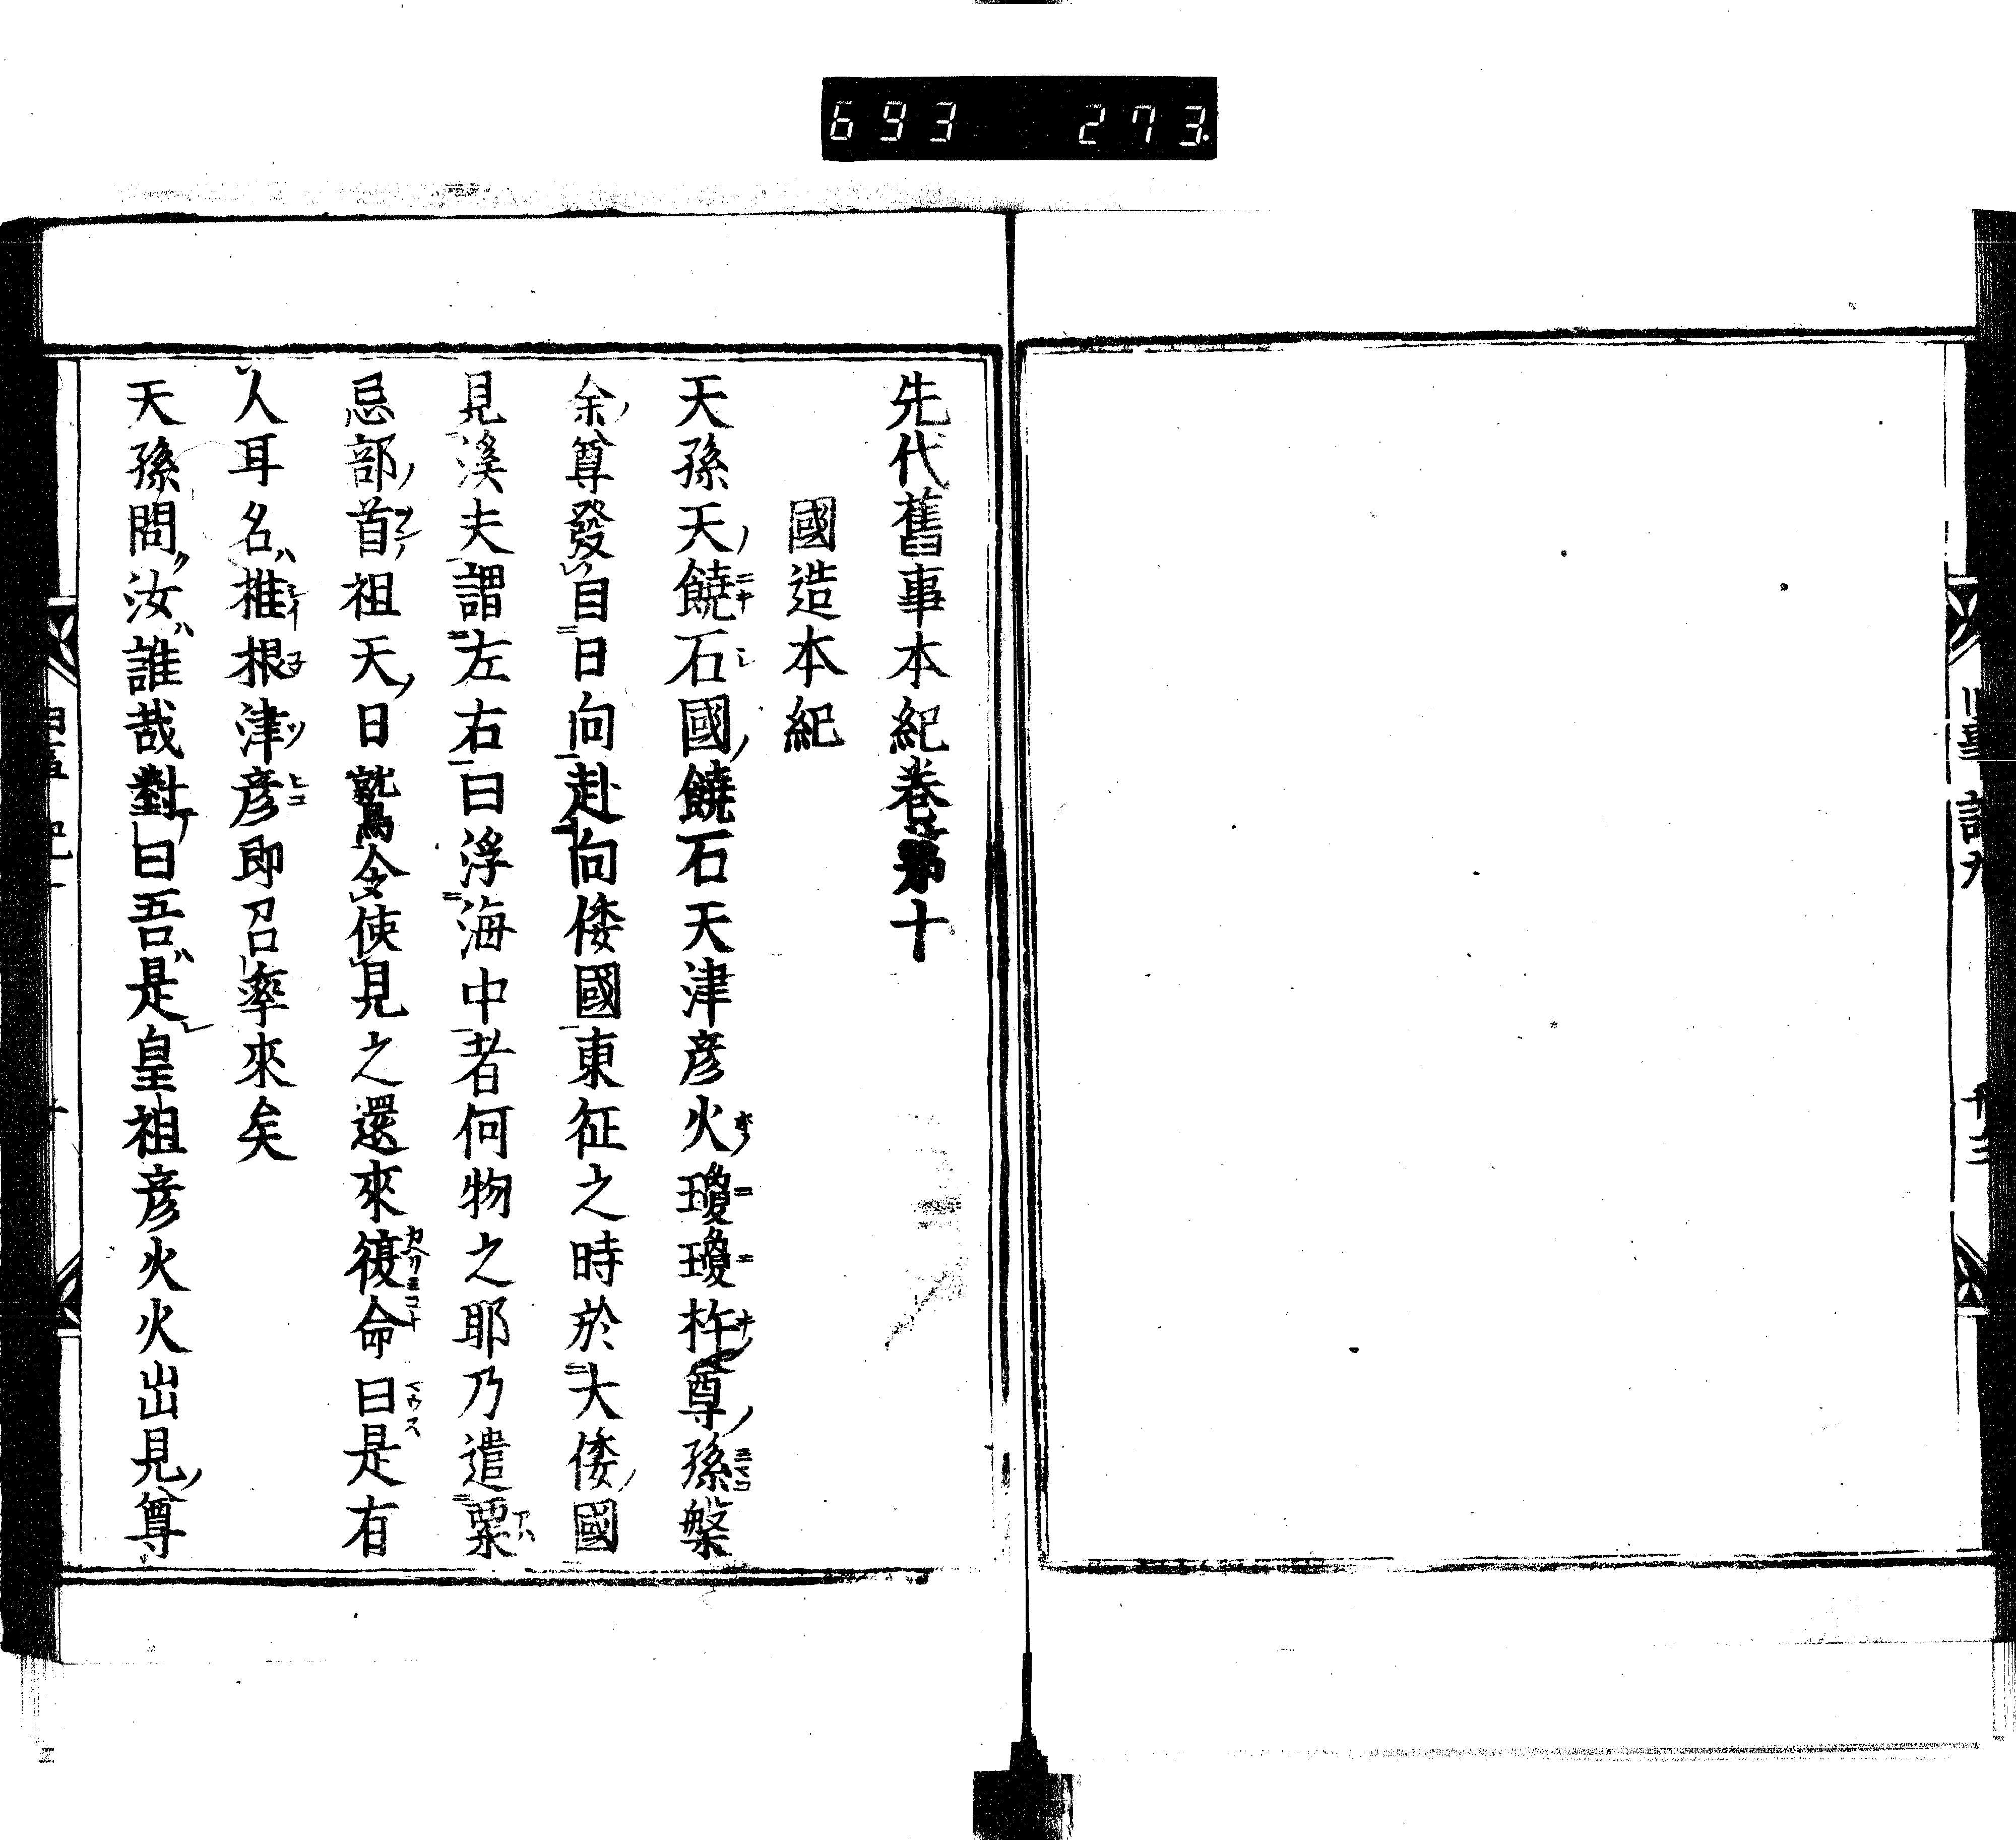 693 273.
先代舊事本紀卷第十
國造本紀
天孫天饒石國饒石天津彦火瓊瓊杵尊孫槃
余尊發自日向赴向倭國東征之時於大倭國
見渓夫謂左右曰浮海中者何物之耶乃遣粟
忌部首祖天日鷲命使見之還來復命曰是有
人耳名椎根津彦即召率來矣
天孫問汝誰哉對曰吾是皇祖彦火火出見尊